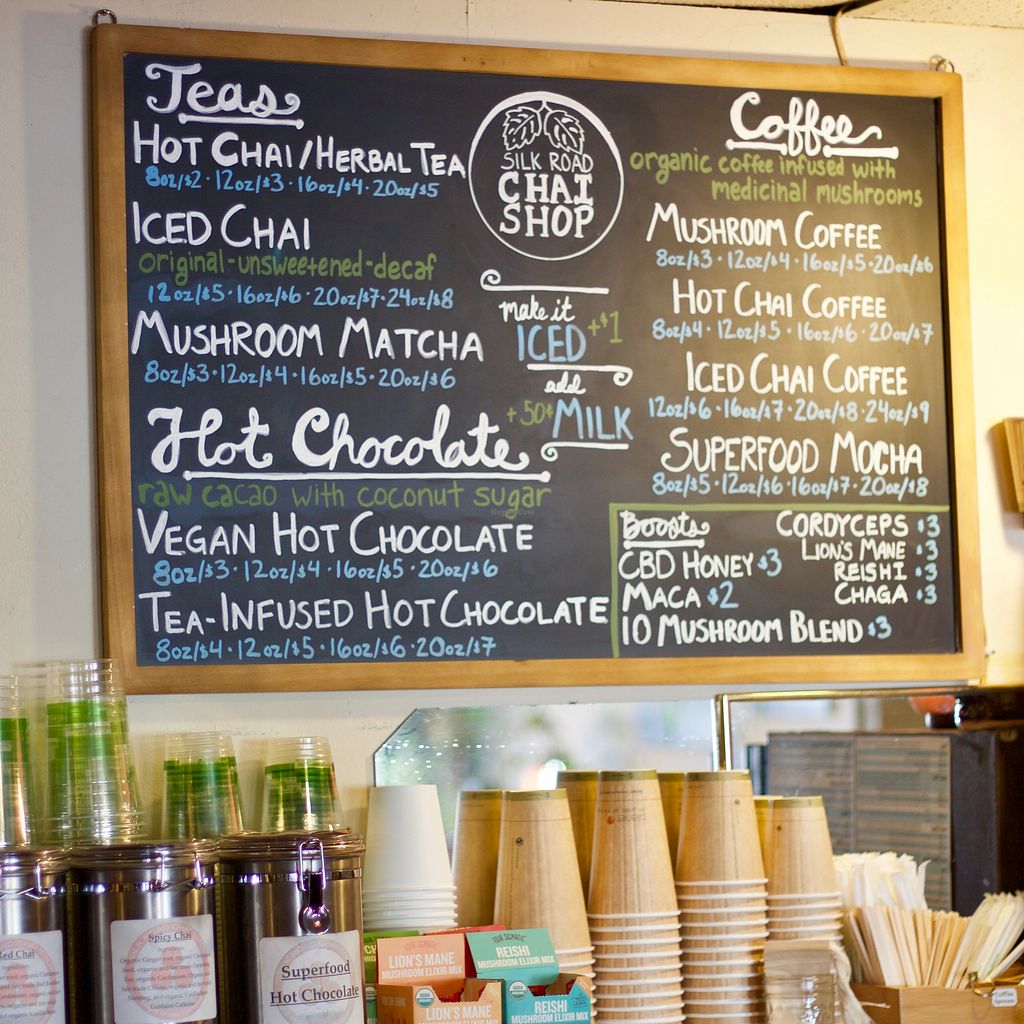 Teas
HOT CHAI/HERBAL TEA
8oz/$2 · 12oz/$3 · 16oz/$4 · 20oz/$5
ICED CHAI
original-unsweetened-decaf
12oz/$5 · 16oz/$6 · 20oz/$7 · 24oz/$8
MUSHROOM MATCHA
8oz/$3 · 12oz/$4 · 16oz/$5 · 20oz/$6
Hot Chocolate
raw cacao with coconut sugar
VEGAN HOT CHOCOLATE
8oz/$3 · 12oz/$4 · 16oz/$5 · 20oz/$6
TEA-INFUSED HOT CHOCOLATE
8oz/$4 · 12oz/$5 · 16oz/$6 · 20oz/$7
SILK ROAD
CHAI
SHOP
make it
ICED +$1
add
+50¢ MILK
Coffee
organic coffee infused with
medicinal mushrooms
MUSHROOM COFFEE
8oz/$3 · 12oz/$4 · 16oz/$5 · 20oz/$6
HOT CHAI COFFEE
8oz/$4 · 12oz/$5 · 16oz/$6 · 20oz/$7
ICED CHAI COFFEE
12oz/$6 · 16oz/$7 · 20oz/$8 · 24oz/$9
SUPERFOOD MOCHA
8oz/$5 · 12oz/$6 · 16oz/$7 · 20oz/$8
Boosts
CBD HONEY $3
MACA $2
10 MUSHROOM BLEND $3
CORDYCEPS $3
LION'S MANE $3
REISHI $3
CHAGA $3
Red Chai
Spicy Chai
Ingredients:
Contains Caffeine
Superfood
Hot Chocolate
LION'S MANE
MUSHROOM ELIXIR MIX
REISHI
MUSHROOM ELIXIR MIX
LION'S MANE
MUSHROOM ELIXIR MIX
REISHI
MUSHROOM ELIXIR MIX